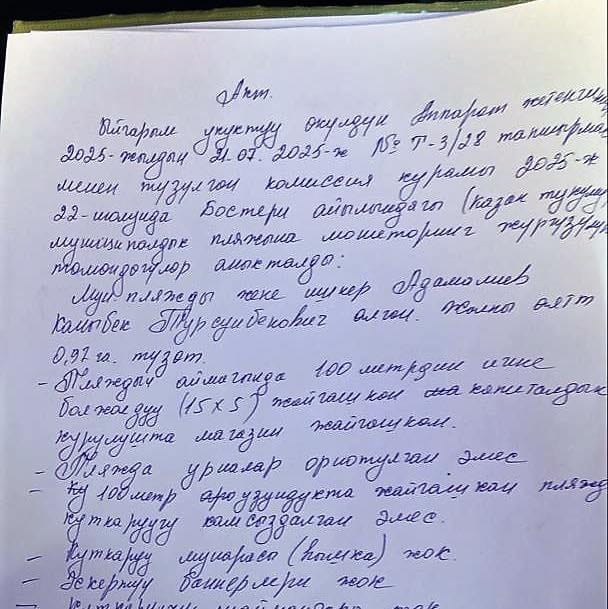 Акт.
Ыйгарым укуктуу өкүлдүн Аппарат жетекчи
2025-жылдын 21.07.2025-ж № Т-3/28 тапшырма
менен түзүлгөн комиссия курамы 2025-ж
22-июлунда Бостери айылындагы (казак тукуму
муниципалдык пляжына мониторинг жүргүзүү
төмөндөгүлөр аныкталды:
Муй пляжды жеке ишкер Адамалиев
Каныбек Турсунбекович алган. Жалпы аятт
0,97 га. түзөт.
- Пляждын аймагында 100 метрдин ичине
болжолдуу (15х5) жайгашкан капиталдык
курулушта магазин жайгашкан.
- Пляжда урналар орнотулган эмес
- 100 метр аралыкта жайгашкан пляж
куткаруучу камсыздалган эмес.
- Куткаруу мунарасы (вышка) жок.
- Эскертүү баннерлери жок